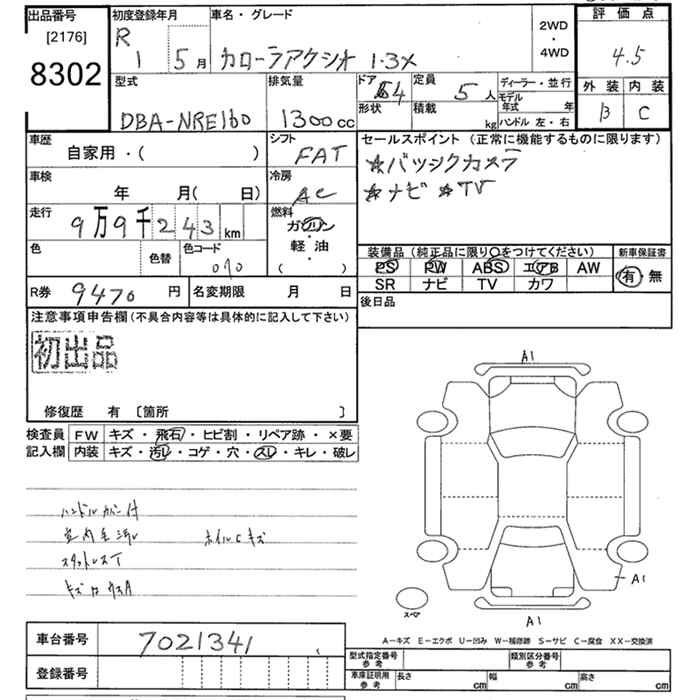 出品番号
[2176]
8302
初度登録年月
R 1 5月
車名・グレード
カローラアクシオ 1.3X
2WD
・
4WD
評価点
4.5
外装 内装
B C
型式
DBA-NRE160
排気量
1300cc
ドア
4
形状
定員
5人
積載
kg
ディーラー・並行
モデル年式 年
ハンドル 左・右
車歴
自家用・( )
シフト
FAT
セールスポイント(正常に機能するものに限ります)
☆バックカメラ
☆ナビ ☆TV
車検
年 月( 日)
冷房
AC
走行
9万9千243km
燃料
ガソリン
・
軽・油
( )
色
色替
色コード
070
装備品(純正品に限り○をつけてください)
PS PW ABS エアB AW
SR ナビ TV カワ
新車保証書
有・無
R券 9470円
名変期限 月 日
後日品
注意事項申告欄(不具合内容等は具体的に記入して下さい)
初出品
修復歴 有 〔箇所 〕
検査員記入欄
FW キズ・飛石・ヒビ割・リペア跡・×要
内装 キズ・汚レ・コゲ・穴・スレ・キレ・破レ
ハンドルカバー付
室内毛汚レ ホイルCキズ
スタットレスT
A1
A1
A1
スペア
A−キズ E−エクボ U−凹み W−補修跡 S−サビ C−腐食 XX−交換済
車台番号 7021341
登録番号
型式指定番号
参考
類別区分番号
参考
車庫証明用
参考
長さ cm
幅 cm
高さ cm